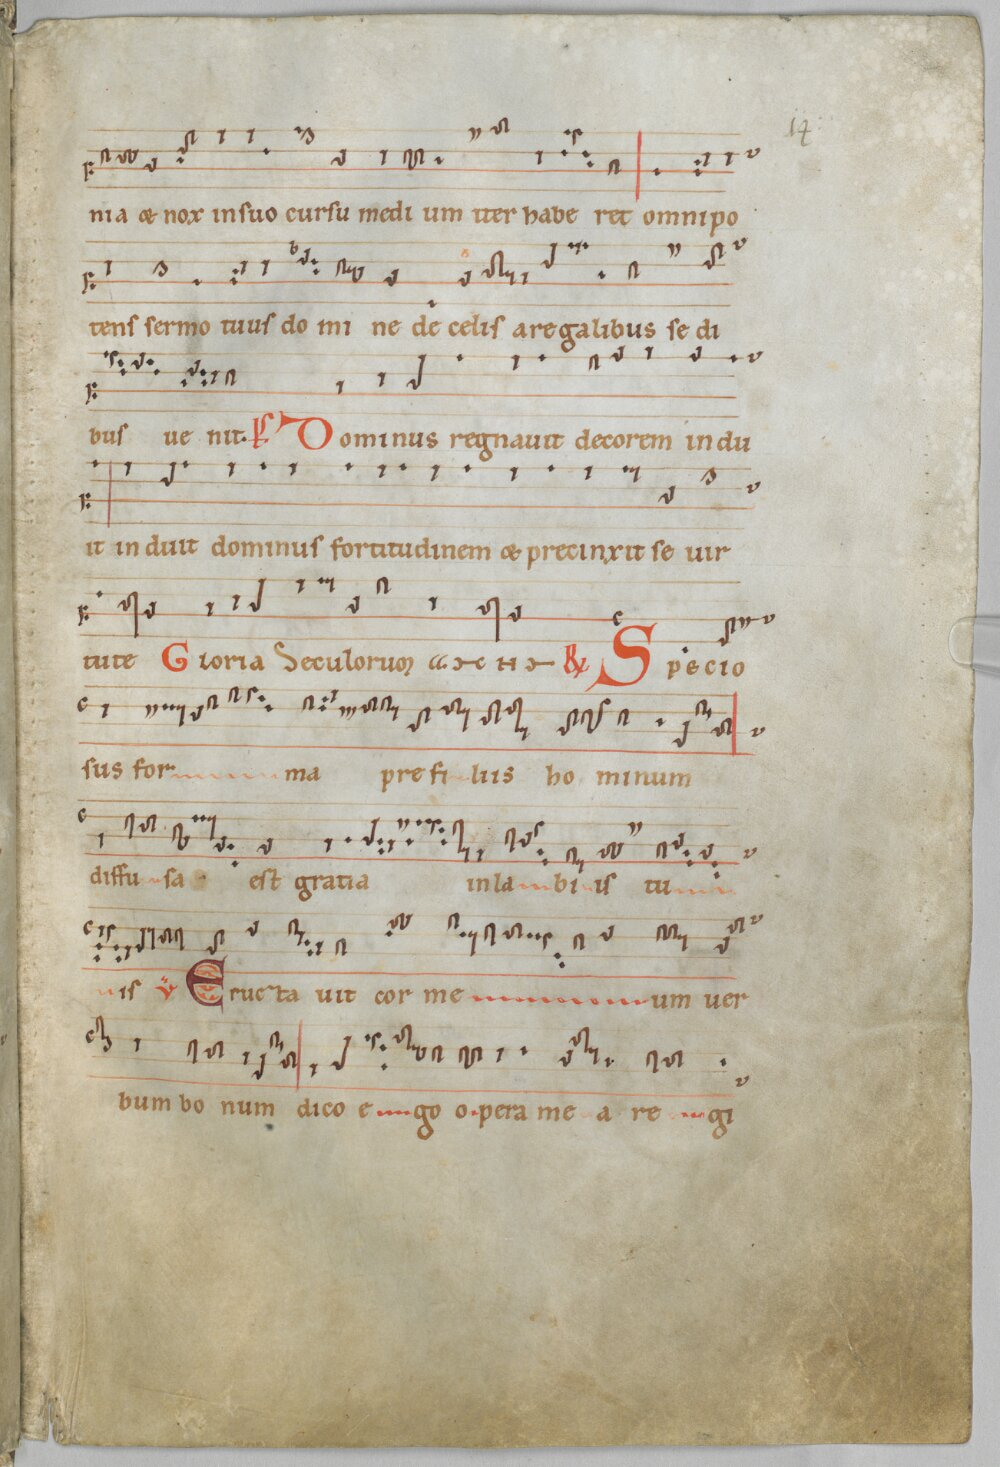 17
nia & nox in suo cursu medi um iter habe ret omnipo
tens sermo tuus do mi ne de celis aregalibus se di
bus ue nit. Ps Dominus regnauit decorem indu
it induit dominus fortitudinem & precinxit se uir
tute Gloria Seculorum R Specio
sus for ma pre fi liis ho minum
diffu sa est gratia inla bi is tu
is V Eructa uit cor me um uer
bum bo num dico e go opera me a re gi